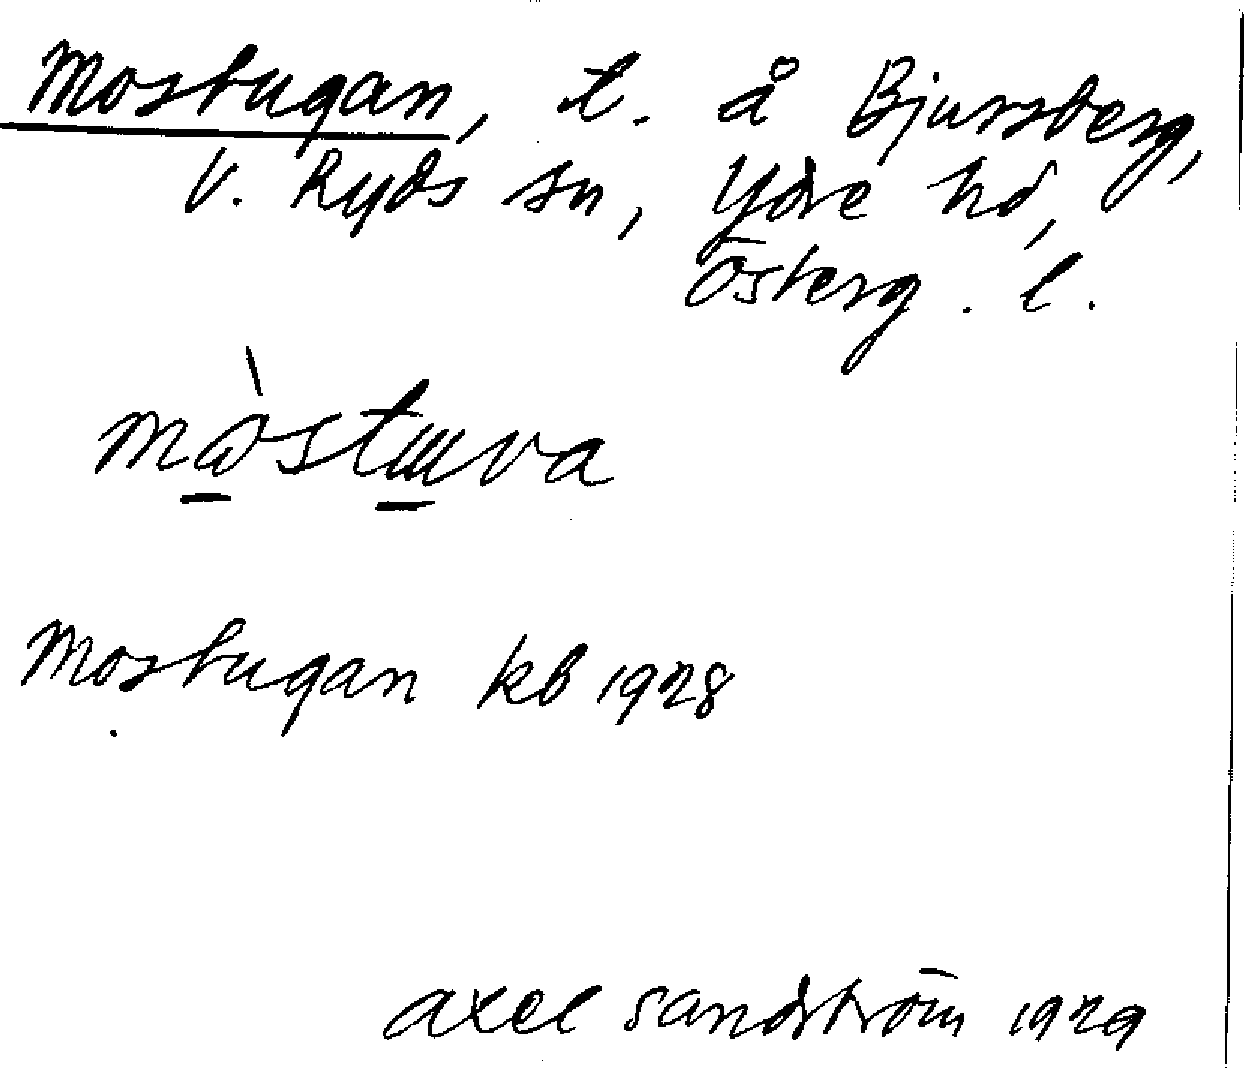 Mostugan, t. å Bjursberg,
V. Ryds sn, Ydre hd,
Österg. l.
Mostugan kb 1928
Axel Sandström 1929